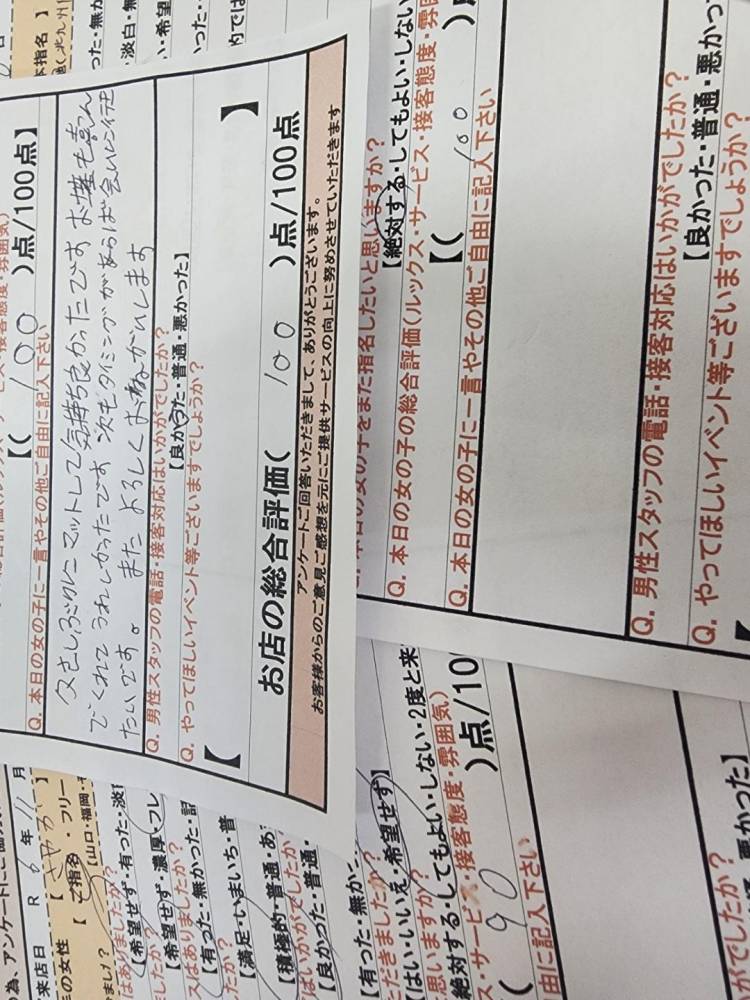 )点/100点】
【( 100
Q. 本日の女の子に一言やその他ご自由に記入下さい
久さしぶりに マットして気持ち良かったです お嬢も喜んでくれてうれしかったです 次もタイミングがあらば会いに行き
たいです。 また よろしくおねがいします
Q. 男性スタッフの電話・接客対応はいかがでしたか?
【良かった・普通・悪かった】
Q. やってほしいイベント等ございますでしょうか?
【 】
お店の総合評価( 100 )点/100点
アンケートご回答いただきまして、ありがとうございます。
お客様からのご意見ご感想を元にご提供サービスの向上に努めさせていただきます
本日の女の子をまた指名したいと思いますか?
【絶対する・してもよい・しない
Q. 本日の女の子の総合評価(ルックス・サービス・接客態度・雰囲
【( 100 )点
Q. 本日の女の子に一言やその他ご自由に記入下さい
Q. 男性スタッフの電話・接客対応はいかがでしたか?
【良かった・普通・悪かっ
Q. やってほしいイベント等ございますでしょうか?
【
為、アンケートにご
来店日 R 6 年 11 月
の女性 【
【ご指名・フリー
(山口・福岡・
はありましたか?
【希望せず・有った・淡
したか?
【希望せず・濃厚・フレ
スはありましたか?
【有った・無かった・記
たか?
【満足・いまいち・普
【積極的・普通・あ
はいかがでしたか
【良かった・普通・
【有った・無か
ただきましたか?
【はい・いいえ・希望せず】
思いますか?
絶対する・してもよい・しない・2度と来
ス・サービス・接客態度・雰囲気)
( 90 )点/10
由に記入下さい
したか?
良かった・普通・悪かっ